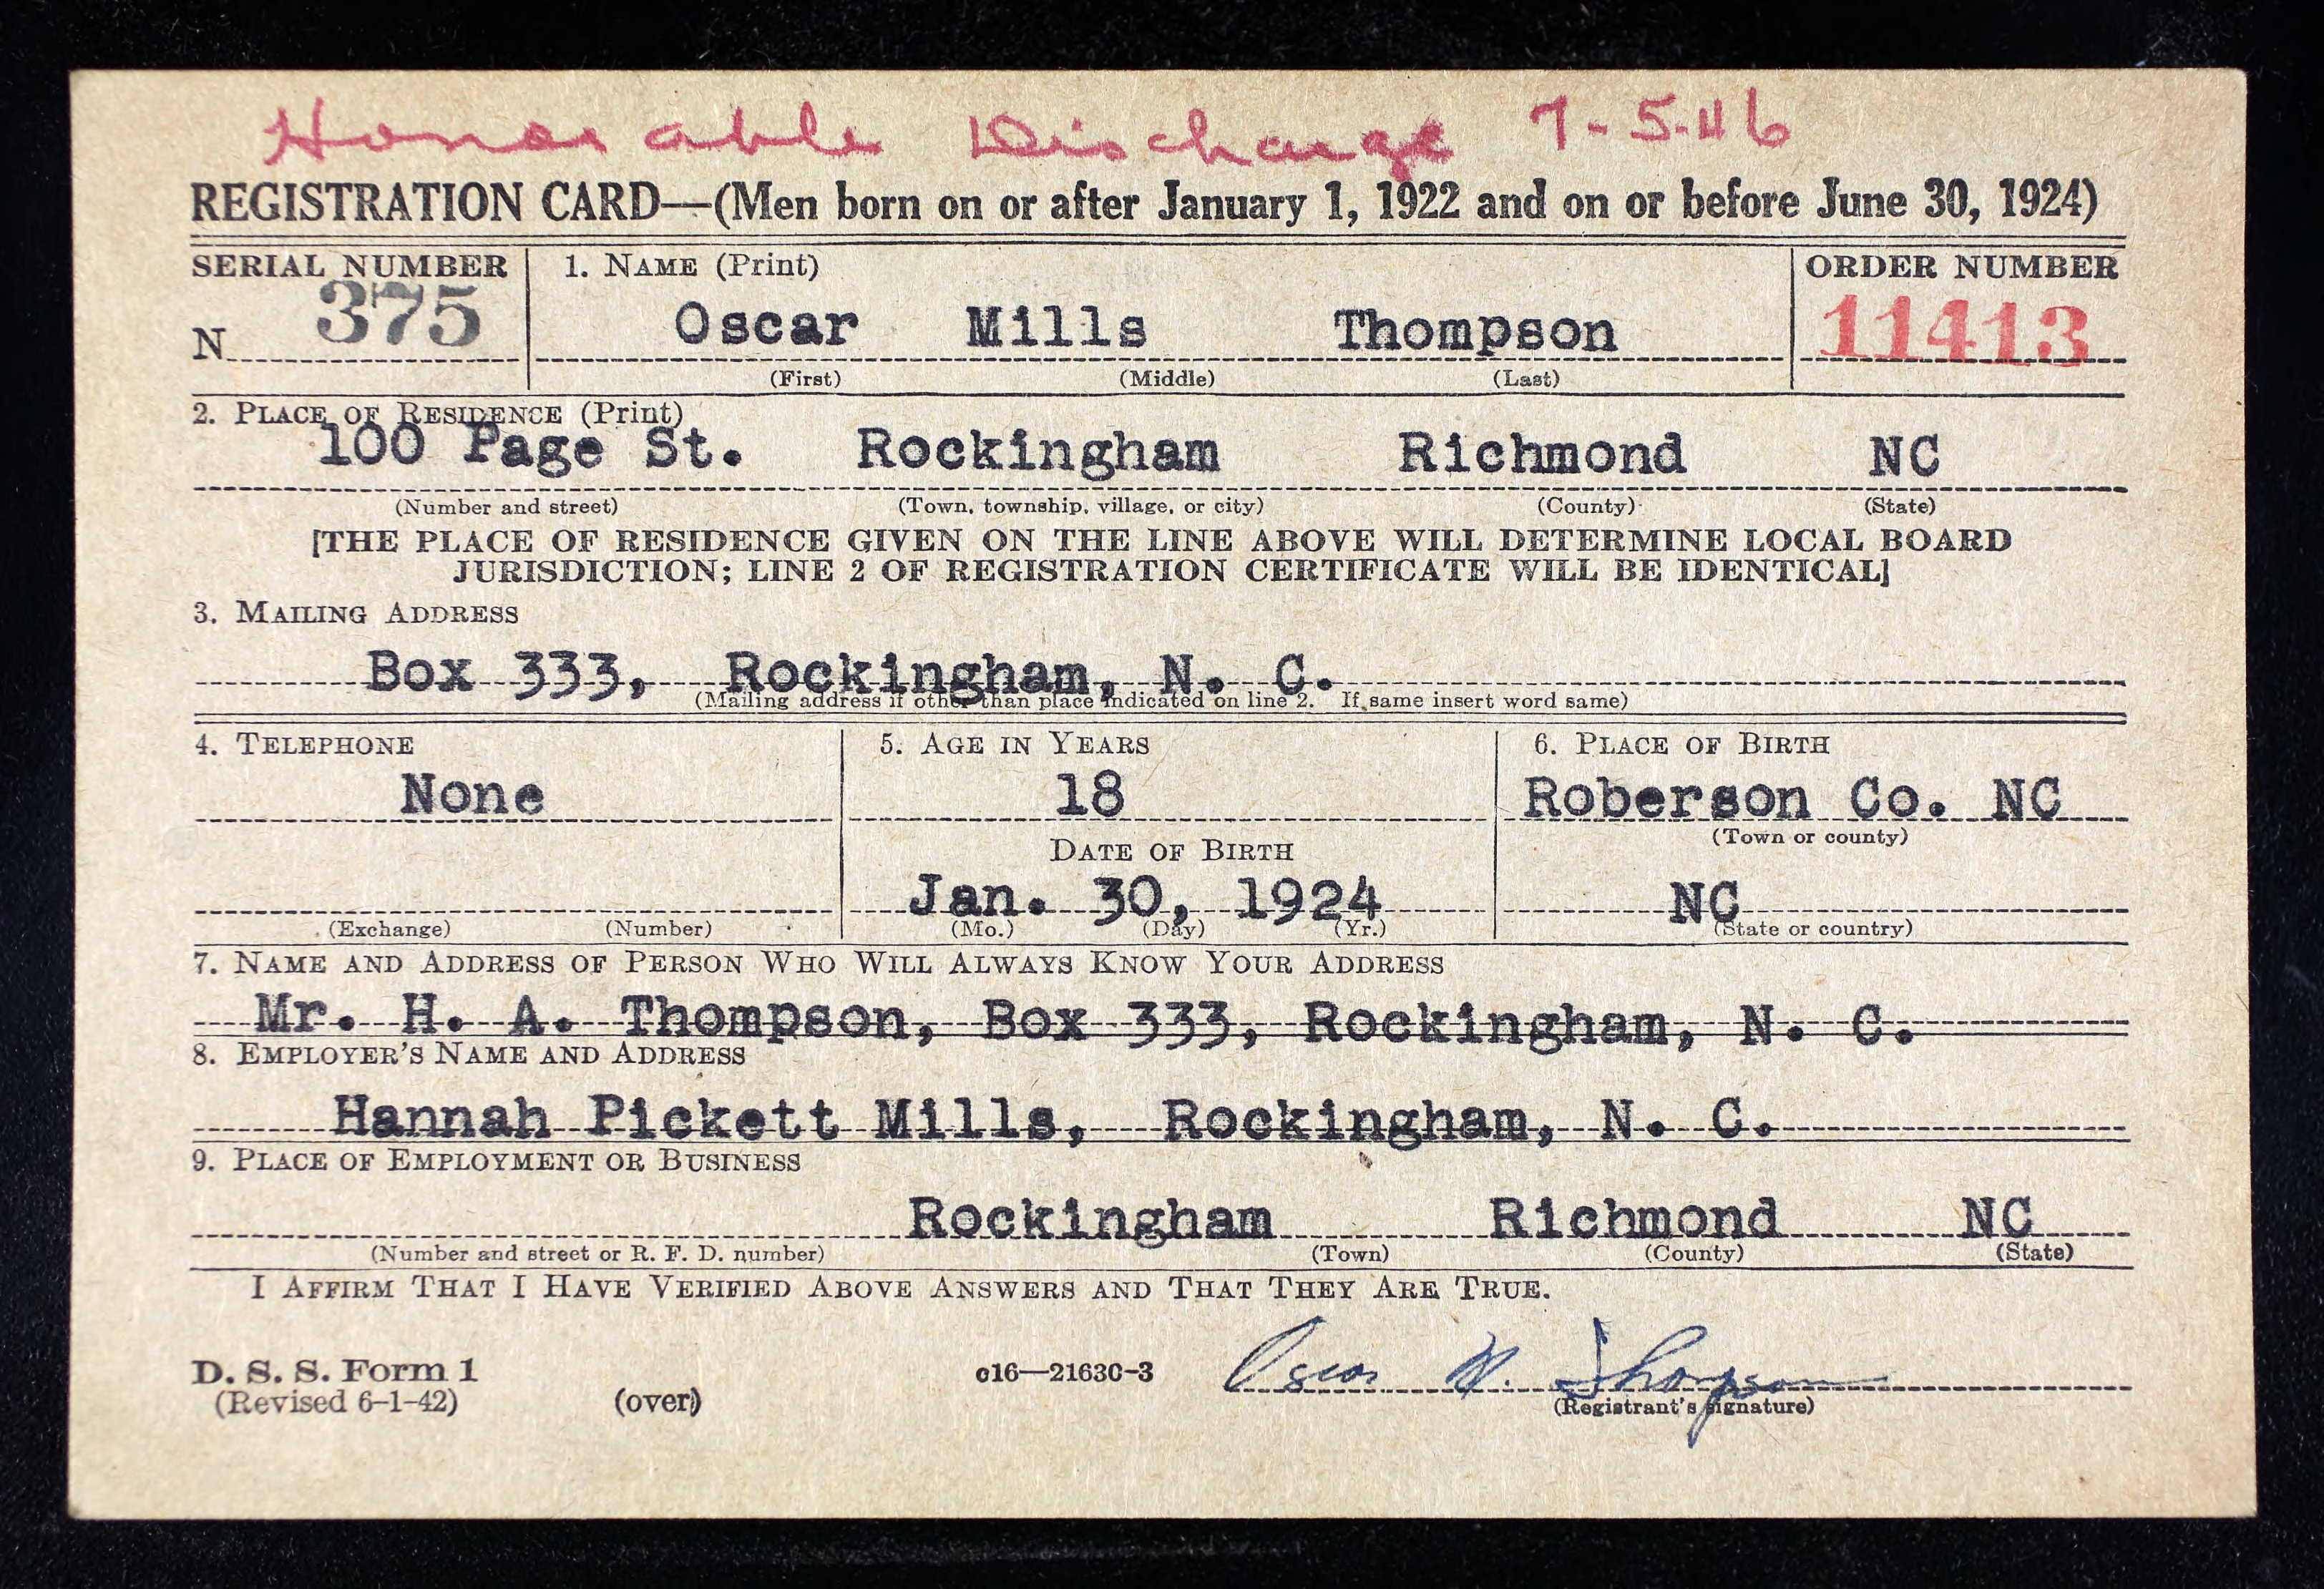 Honorable Discharge 7-5-46
REGISTRATION CARD—(Men born on or after January 1, 1922 and on or before June 30, 1924)
SERIAL NUMBER 1. NAME (Print) ORDER NUMBER
N 375 Oscar Mills Thompson 11413
(First) (Middle) (Last)
2. PLACE OF RESIDENCE (Print)
100 Page St. Rockingham Richmond NC
(Number and street) (Town, township, village, or city) (County) (State)
[THE PLACE OF RESIDENCE GIVEN ON THE LINE ABOVE WILL DETERMINE LOCAL BOARD
JURISDICTION; LINE 2 OF REGISTRATION CERTIFICATE WILL BE IDENTICAL]
3. MAILING ADDRESS
Box 333, Rockingham, N. C.
(Mailing address if other than place indicated on line 2. If same insert word same)
4. TELEPHONE 5. AGE IN YEARS 6. PLACE OF BIRTH
None 18 Roberson Co. NC
(Town or county)
DATE OF BIRTH
Jan. 30, 1924 NC
(Exchange) (Number) (Mo.) (Day) (Yr.) (State or country)
7. NAME AND ADDRESS OF PERSON WHO WILL ALWAYS KNOW YOUR ADDRESS
Mr. H. A. Thompson, Box 333, Rockingham, N. C.
8. EMPLOYER'S NAME AND ADDRESS
Hannah Pickett Mills, Rockingham, N. C.
9. PLACE OF EMPLOYMENT OR BUSINESS
Rockingham Richmond NC
(Number and street or R. F. D. number) (Town) (County) (State)
I AFFIRM THAT I HAVE VERIFIED ABOVE ANSWERS AND THAT THEY ARE TRUE.
D. S. S. Form 1 c16—21630-3 Oscar M. Thompson
(Revised 6-1-42) (over) (Registrant's signature)